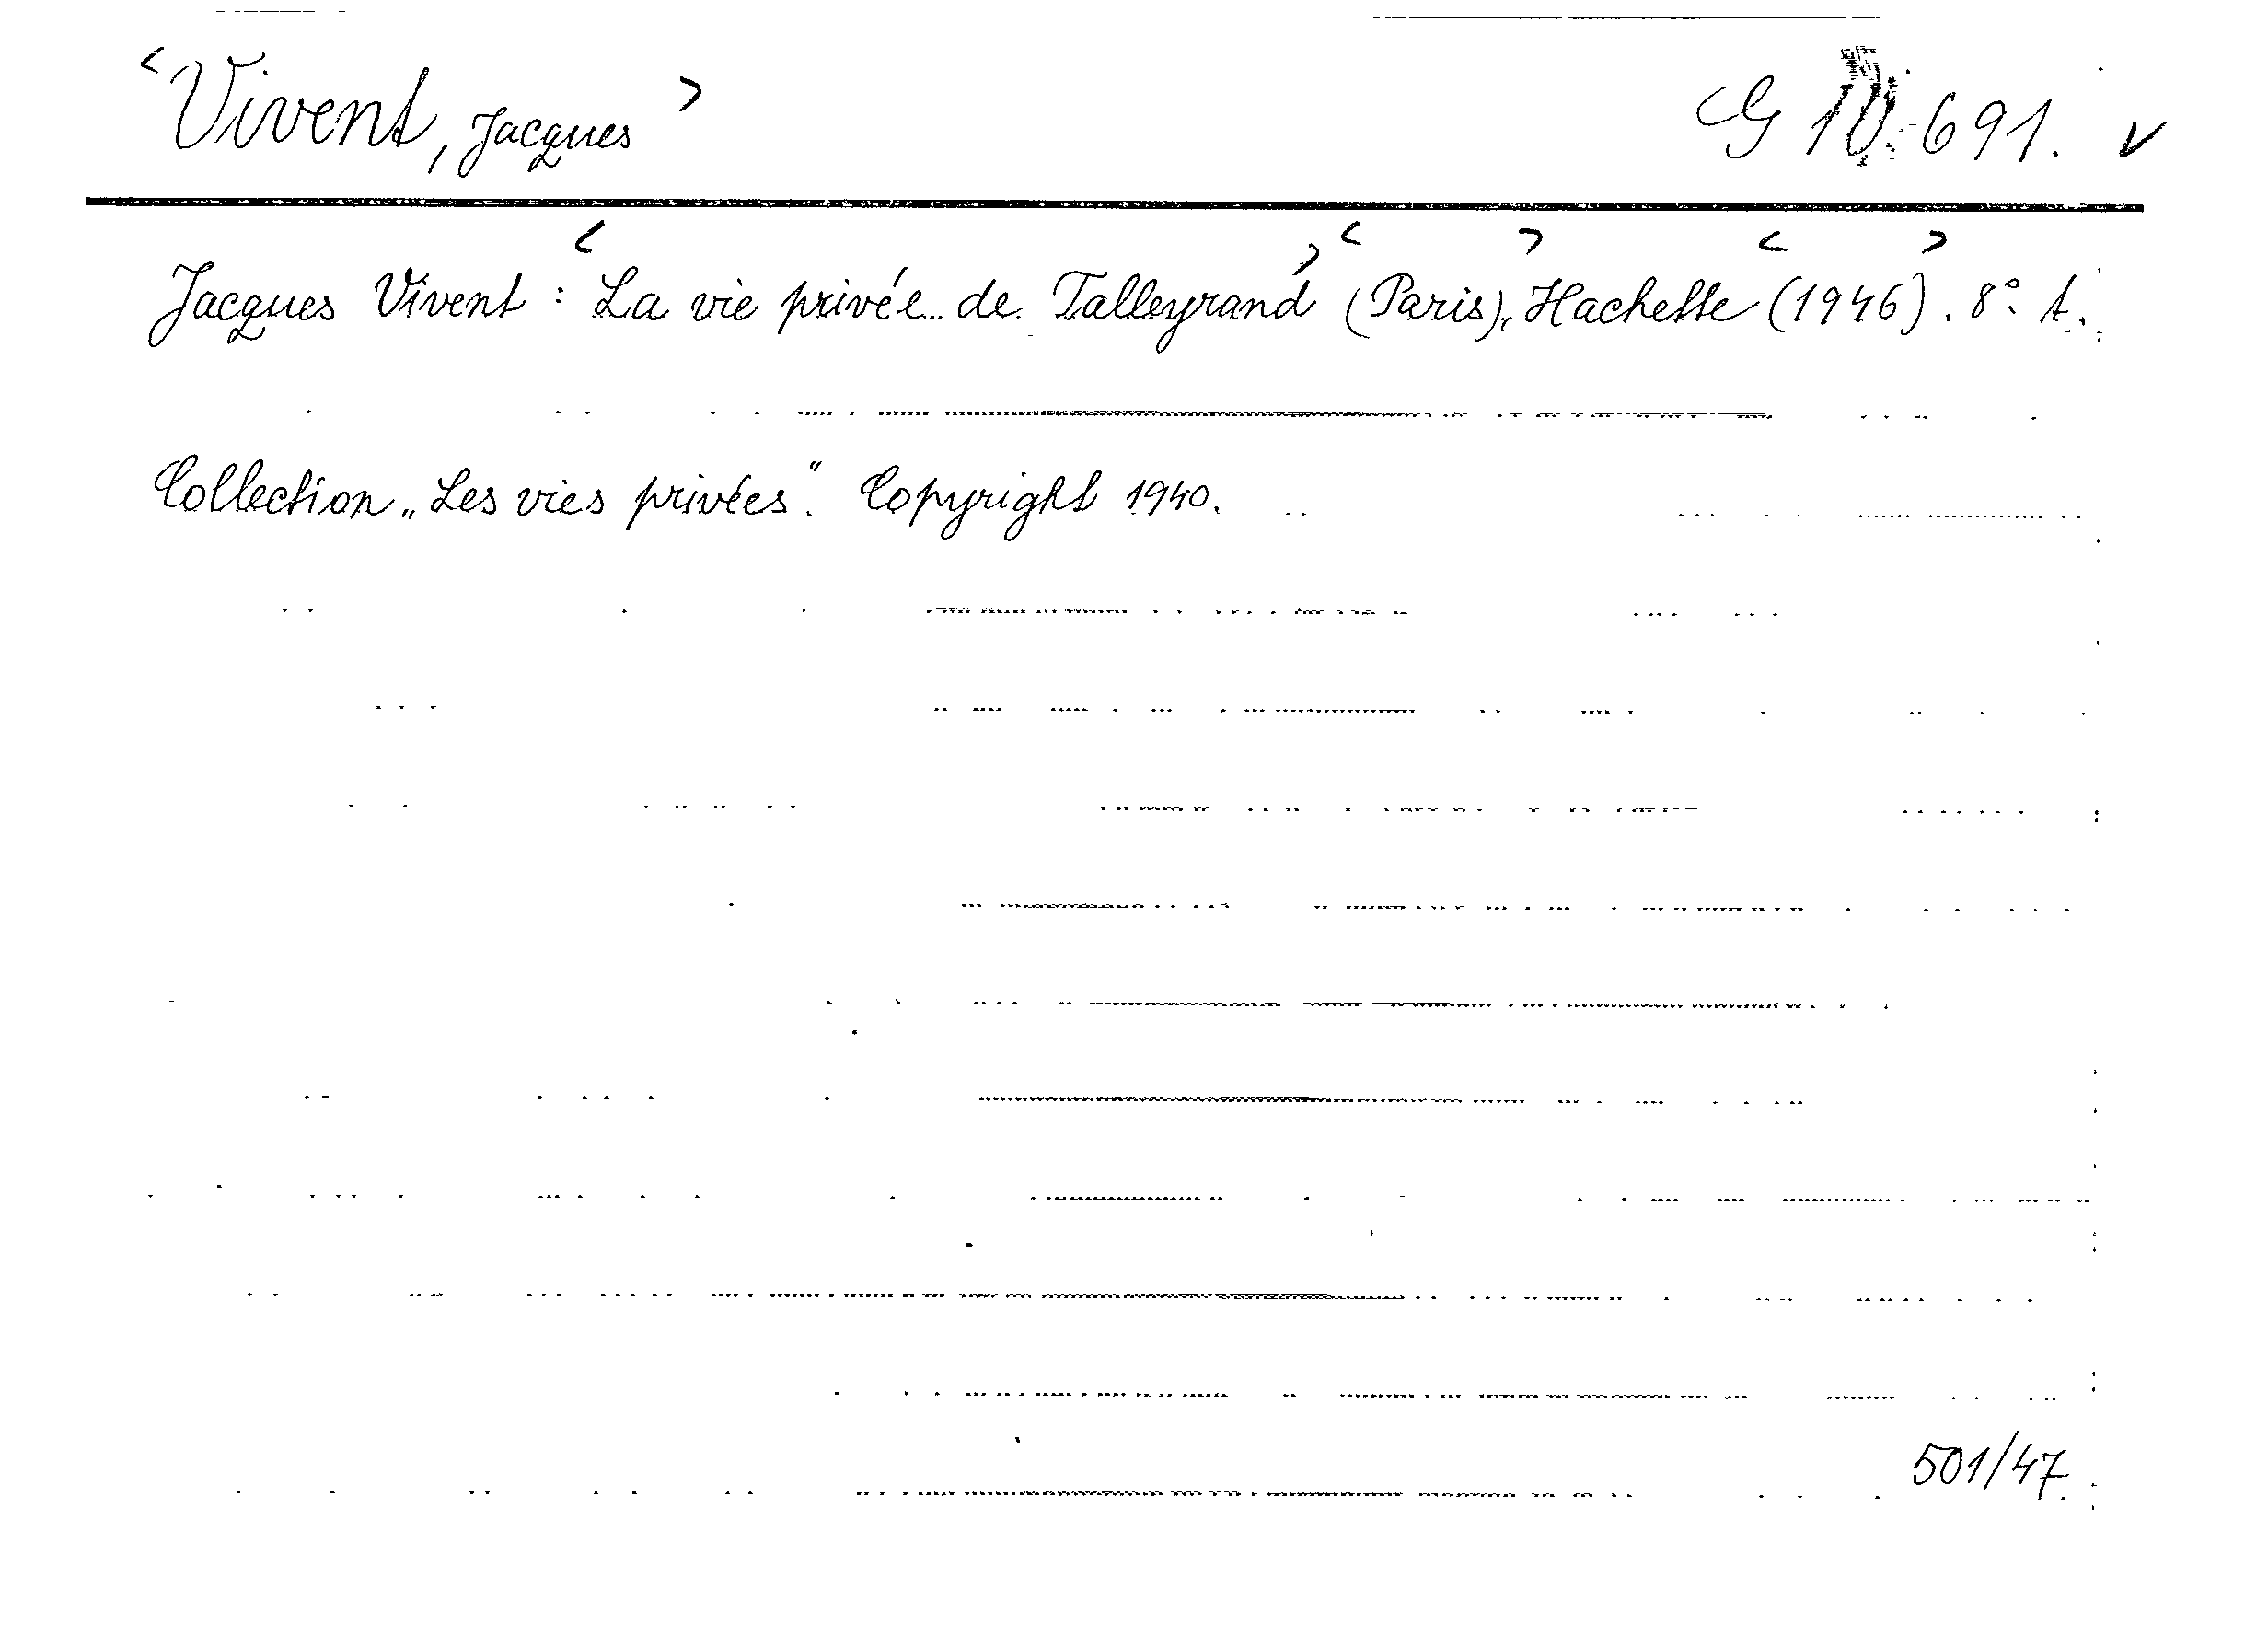 <Vivent, Jacques> G IV. 691. v
Jacques Vivent: <La vie privée de Talleyrand> <(Paris)>, Hachette <(1946)>. 8° t.
Collection „Les vies privées“. Copyright 1940.
501/47.